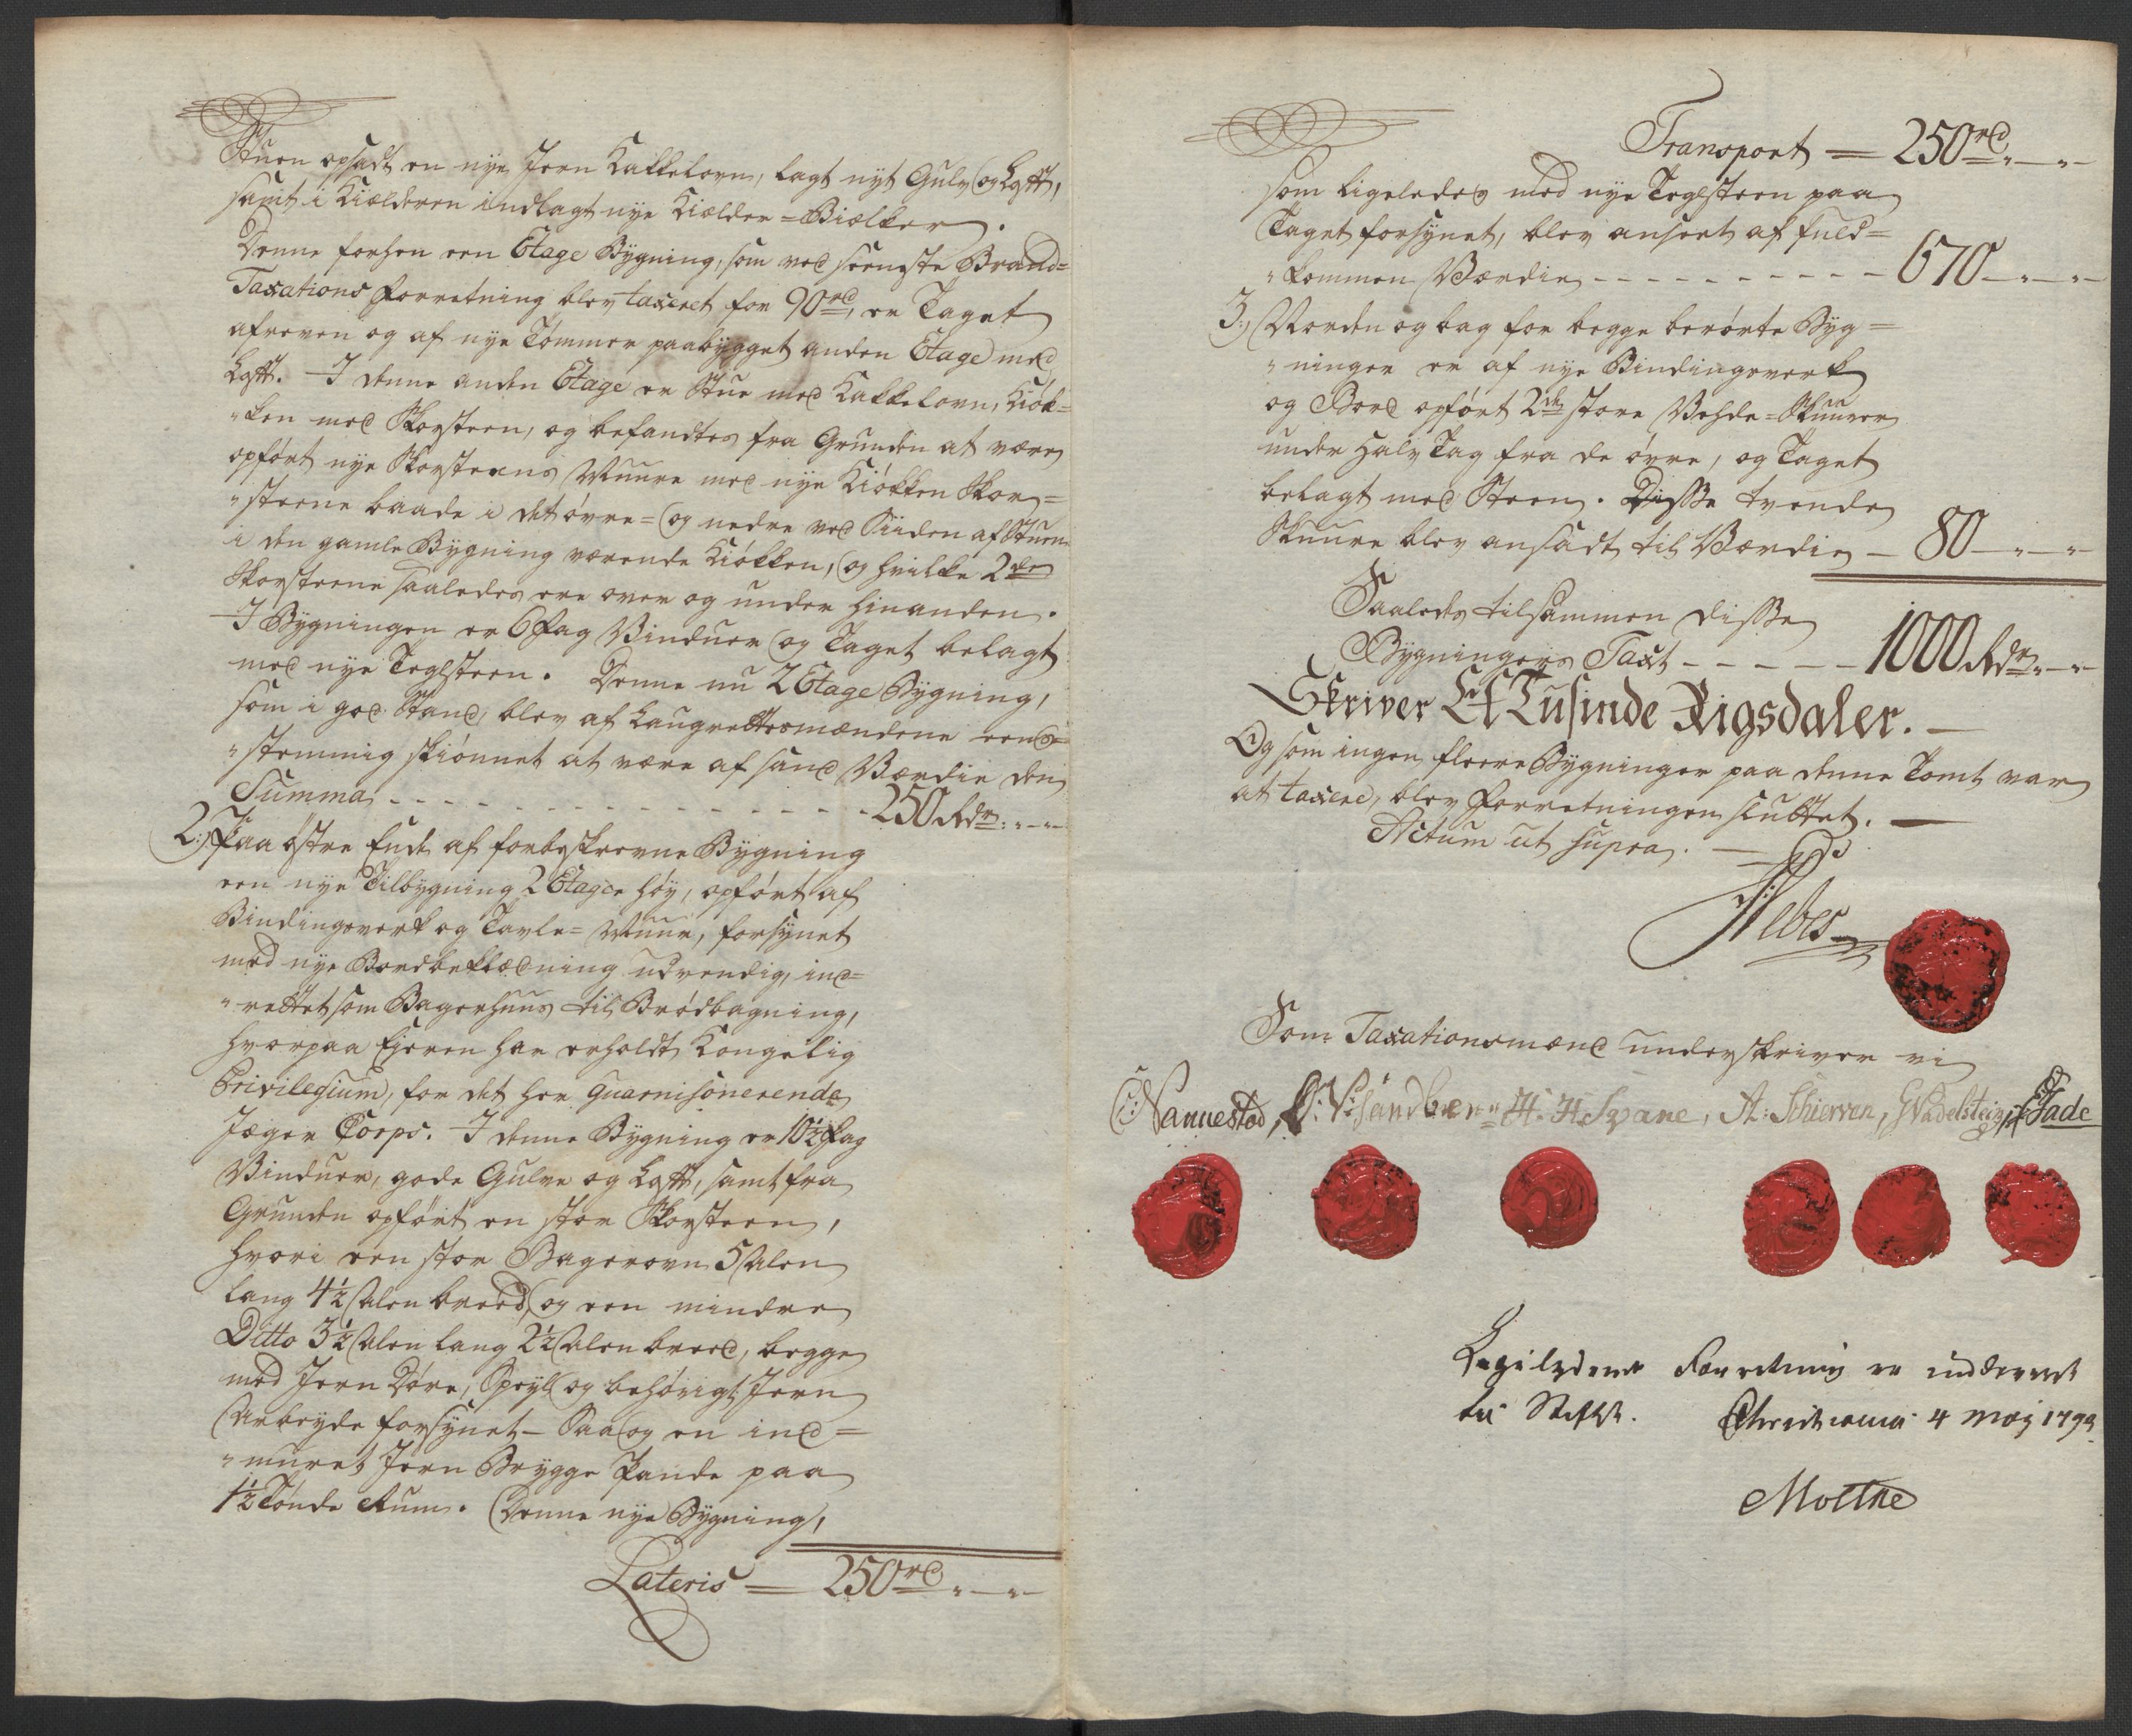 Stuen opsadt en nye Jern Kakkelovn, lagt nyt Gulv og Lofft,
samt i Kielderen indlagt nye Kielder=Bielker.
Denne forhen een Etage Bygning, som ved seeneste Brand=
Taxations Forretning blev taxeret for 90 rd, er Taget
afreven og af nye Tømmer paabygget anden Etage med
Lofft. I denne anden Etage er Stue med Kakkelovn, Kiøk=
"ken med Skorsteen, og befandtes fra Grunden at være
opført nye Skorsteens Muure med nye Kiøkken Skor=
"steene baade i det øvre= og nedre ved Siiden af Stuen
i den gamle Bygning værende Kiøkken, og hvilke 2de
Skorsteene saaledes ere over og under hinanden.
I Bygningen er 6 Fag Vinduer og Taget belagt
med nye Teglsteen. Denne nu 2 Etage Bygning,
som i god Stand, blev af Laugrettesmændene eens=
"stemmig skiønnet at være af sand Værdie den
Summa - - - 250 Rdr. " — "
2:) Paa østre Ende af forbeskrevne Bygning
een nye Tilbygning 2 Etager høy, opført af
Bindingsverk og Tavle= Muur, forsynet
med nye Bordbeklædning udvendig, ind=
"rettet som Bagerhuus til Brødbagning,
hvorpaa Ejeren har erholdt Kongelig
Privilegium, for det her guarnisonerende
Jæger Corps. I denne Bygning er 10½ Fag
Vinduer, gode Gulve og Lofft, samt fra
Grunden opført en stor Skorsteen,
hvori een stor Bagerovn 5 Alen
lang 4½ Alen breed, og een mindre
Ditto 3½ Alen lang 2½ Alen breed, begge
med Jern Døre, Speyl og behørigt Jern
Arbeyde forsynet – Saa og en ind=
"muret Jern Brygge Pande paa
1½ Tønde Rum. Denne nye Bygning,
Lateris = 250 rd " — "
Transport = 250 rd " — "
som ligeledes med nye Teglsteen paa
Taget forsynet, blev anseet af fuld=
"kommen Værdie - - - 670 — " — "
3:) Norden og bag for begge berørte Byg=
"ninger er af nye Bindingsverk
og Bord opført 2de store Vehde=Skuurer
under halv Tag fra de øvre, og Taget
belagt med Steen. Disse tvende
Skuure blev ansadt til Værdie – 80 — " — "
Saaledes tilsammen disse
Bygningers Taxt - - - 1000 Rdr. " — "
Skriver Et Tusinde Rigsdaler. —
Og som ingen fleere Bygninger paa denne Tomt var
at taxere, blev Forretningen sluttet. —
Actum ut supra. —
Som Taxationsmænd underskriver vi
C: Nannestad, H. H Svane, A: Schierven, G Vadelstein, Fade
Ligelydende Forretning er indleveret
til Stiftet. Christiania 4 Maj 179
Moltke